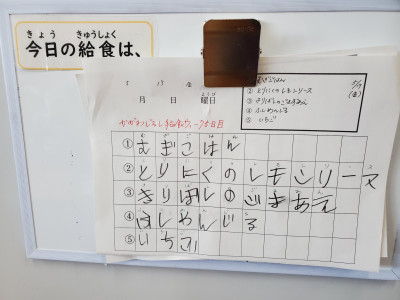 きょう きゅうしょく
今日の給食は、
5 17 金
ようび
月 日 曜日
むぎごはん
② とりにくのレモンソース
③ きりぼしのごまあえ
④ ふしめんじる
⑤ いちご
5/17
(金)
① むぎごはん
② とりにくのレモンソース
③ きりぼしのごまあえ
④ ふしめんじる
⑤ いちご